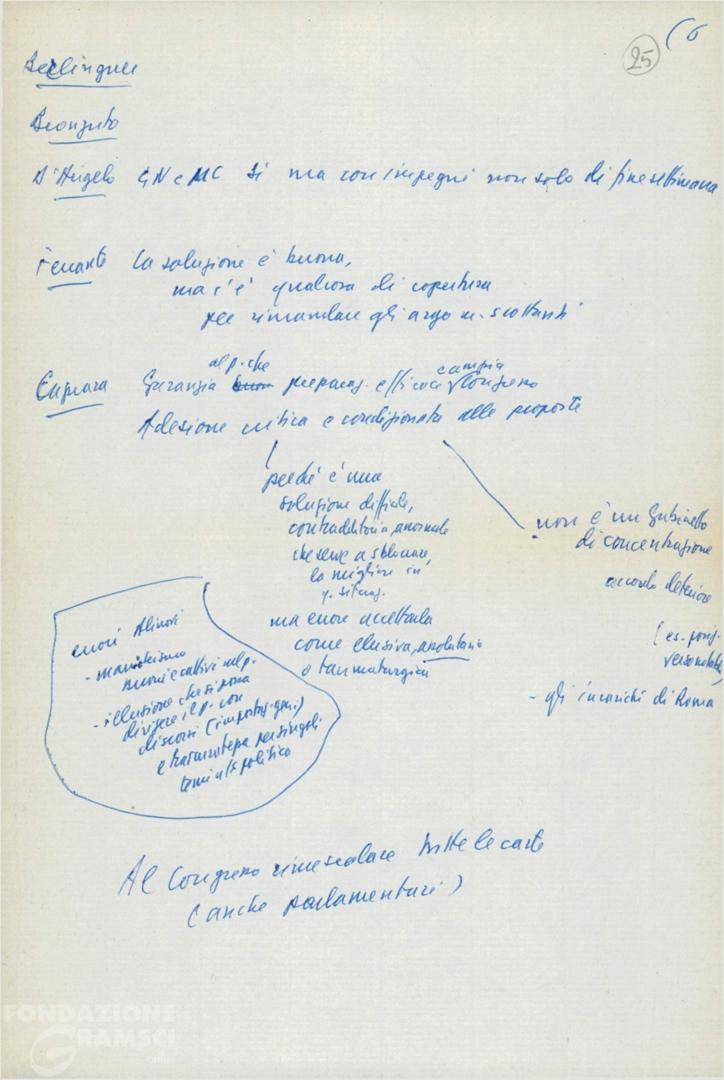 (6
25
Berlinguer
Bronzuto
D'Angelo GN e MC si ma con impegni non solo di fine settimana
Fenoante La soluzione è buona,
ma c'è qualcosa di copertura
per rimandare gli argom. scottanti
al p. che
campia
Caprara Garanzia preparaz. efficace Congresso
Adesione critica e condizionata alle proposte
perché è una
soluzione difficile,
contradditoria, anormale
che serve a sbloccare,
la migliore in
q. situaz.
ma errore accettarla
come elusiva, assolutoria
o taumaturgica
non è un Gabinetto
di concentrazione
accordo deteriore
(es. posiz.
versomatale)
- gli incarichi di Roma
errori Alinovi
- manicheismo
buoni e cattivi nel p.
- illusione che si possa
dirigere il p. con
discorsi (impostaz. gen.)
e trattative per singoli
temi u/s politico
Al Congresso rimescolare tutte le carte
(anche parlamentari)
FONDAZIONE
GRAMSCI